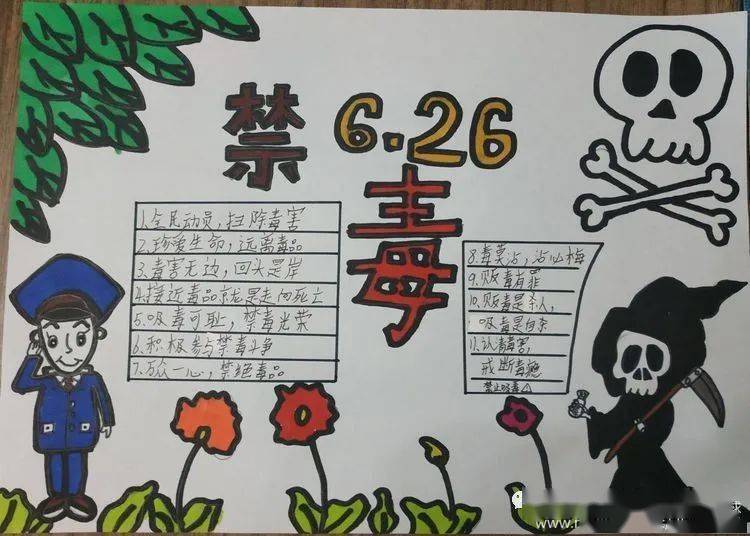 禁
6.26
毒
1.全民动员，扫除毒害
2.珍爱生命，远离毒品
3.毒害无边，回头是岸
4.接近毒品就是走向死亡
5.吸毒可耻，禁毒光荣
6.积极参与禁毒斗争
7.万众一心，禁绝毒品
8.毒莫沾，沾必悔
9.贩毒有罪
10.贩毒是杀人，
吸毒是自杀
11.认清毒害，
戒断毒瘾
禁止吸毒
www.